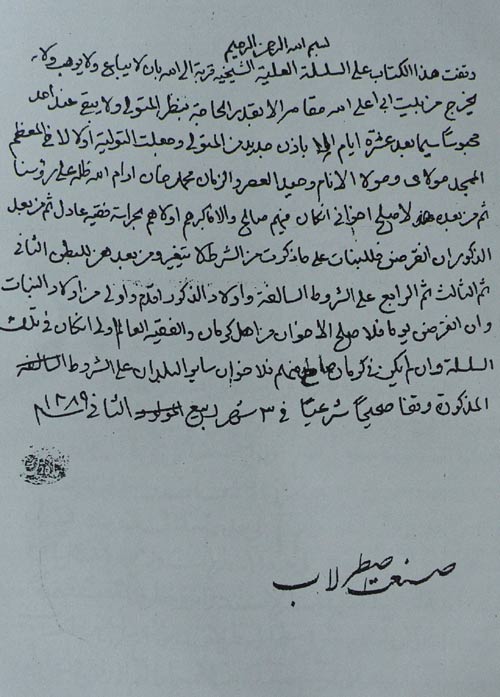 بسم الله الرحمن الرحيم
وقفت هذا الكتاب على السلسلة العلية الشيخية قربة الى الله بان لا يباع ولا يوهب ولا
يخرج من بيت ابي اعلى الله مقامه الا بقدر الحاجة بنظر المتولي ولا يبقى عند احد
محبوساً سيما بعد عشرة ايام الا باذن جديد من المتولي وجعلت التولية اولا للاخ المعظم
الممجد مولاي ومولا الانام وحيد العصر والزمان محمد خان ادام الله ظله على رؤسنا
ثم من بعده لاصلح اخواني ان كان فيهم صالح والا فاكبرهم اولاهم بحراسة فقيه عادل ثم من بعد
الذكور ان انقرضن فللبنات على ما ذكرت من الشرط لا يتغير ومن بعدهن للبطن الثاني
ثم الثالث ثم الرابع على الشروط السالفة واولاد الذكور اقدم واولى من اولاد البنات
وان انقرضن يوما فلاصلح الاخوان من اهل كرمان والفقيه العالم اولى ان كان في تلك
السلسلة وان لم يكن في كرمان صالح منهم فلاخوان ساير البلدان على الشروط السالفة
المذكورة وقفا صحيحاً شرعياً في ٣ شهر ربيع الثاني ١٢٨٩
صنعت صطرلاب